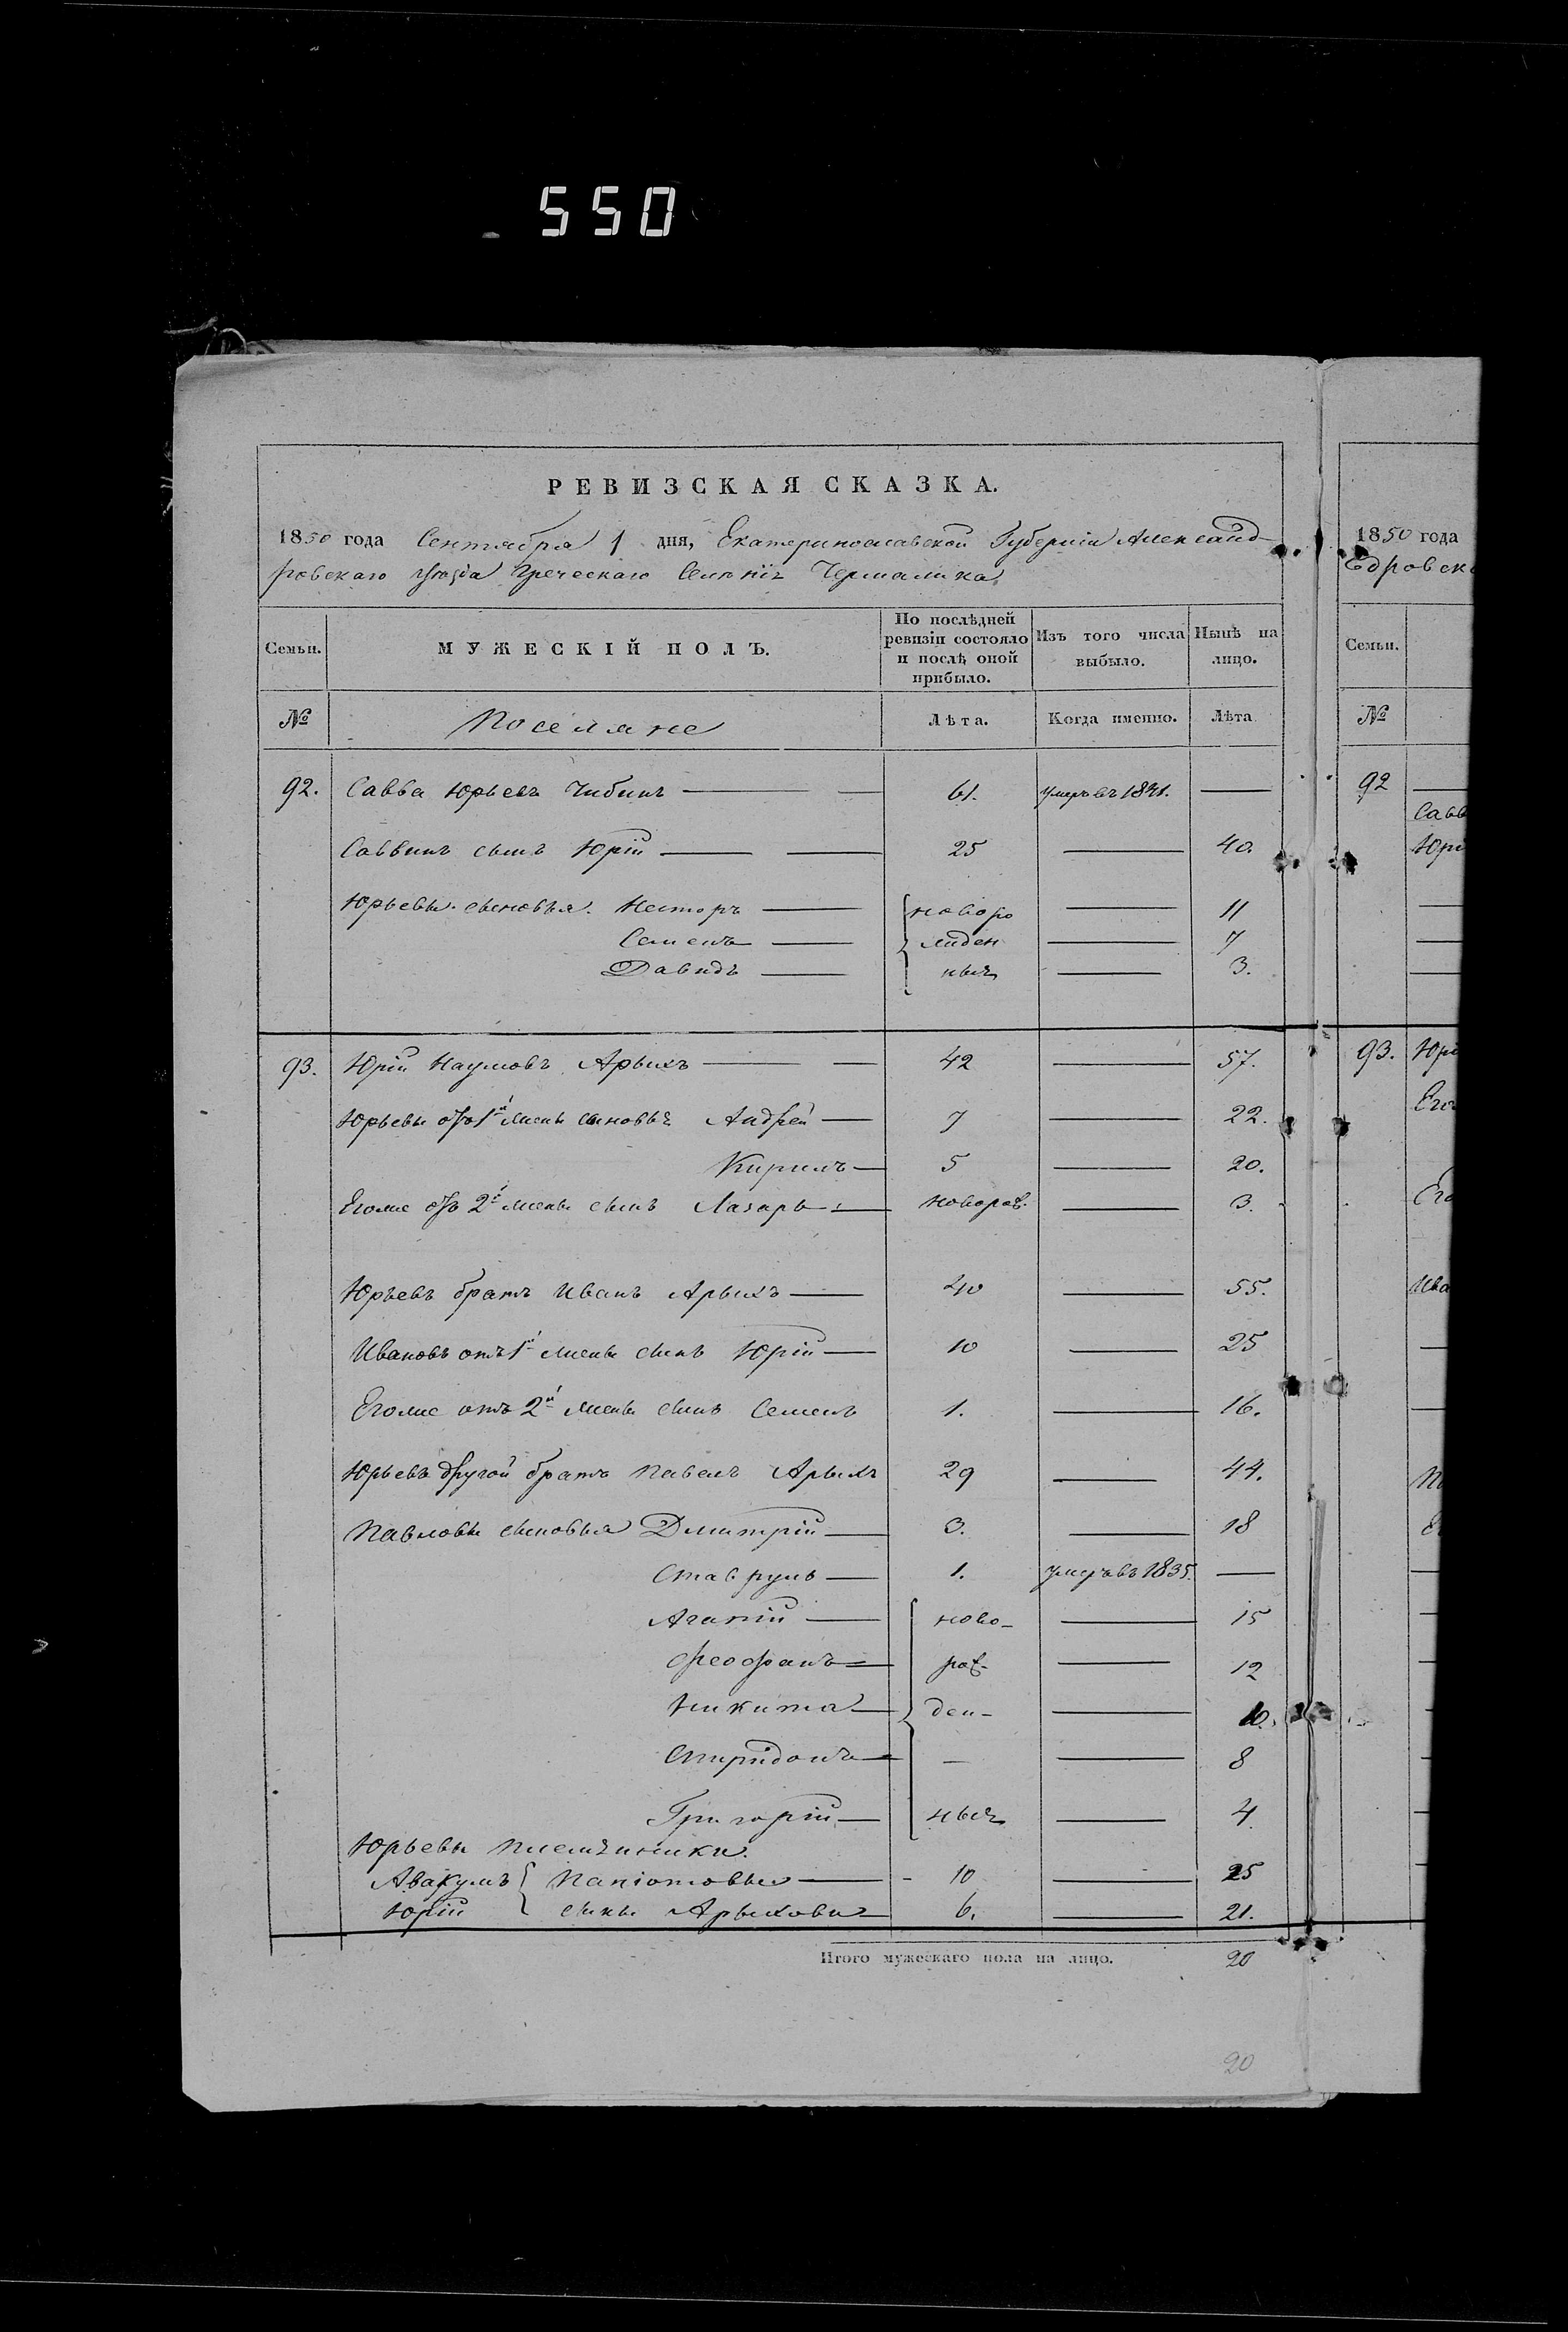 550
РЕВИЗСКАЯ СКАЗКА.
1850 года Сентября 1 дня, Екатеринославской Губернiи Александ-
ровскаго уѣзда Греческаго Селенiя Чермалика
Семьи. МУЖЕСКIЙ ПОЛЪ. По послѣдней ревизiи состояло и послѣ оной прибыло. Изъ того числа выбыло. Нынѣ на лицо.
№ Поселяне Лѣта. Когда именно. Лѣта
92. Савва Юрьевъ Чибинъ 61. умеръ въ 1841. —
Саввинъ сынъ Юрiй 25 — 40.
Юрьевы сыновья. Несторъ новоро — 11
Семенъ жден — 7
Давидъ ныя — 3.
93. Юрiй Наумовъ Арыхъ 42 — 57.
Юрьевы отъ 1й жены сыновья Андрей 7 — 22.
Кирилъ 5 — 20.
Егоже отъ 2й жены сынъ Лазарь новорож. — 3.
Юрьевъ братъ Иванъ Арыхъ 40 — 55.
Ивановъ отъ 1й жены сынъ Юрiй 10 — 25
Егоже отъ 2й жены сынъ Семенъ 1. — 16.
Юрьевъ другой братъ Павелъ Арыхъ 29 — 44.
Павловы сыновья Дмитрiй 3. — 18
Ставрулъ 1. умеръ въ 1835. —
Агапiй ново- — 15
Феофанъ рож- — 12
Никита ден- — 10.
Спиридонъ — — 8
Григорiй ныя — 4
Юрьевы племянники.
Авакумъ Панiотовы 10 — 25
Юрiй сыны Арыховы 6. — 21.
Итого мужескаго пола на лицо. 20
20
1850 года
Едровск
Семьи.
№
92
Савв
Юрi
93. Юрi
Его
Его
Ива